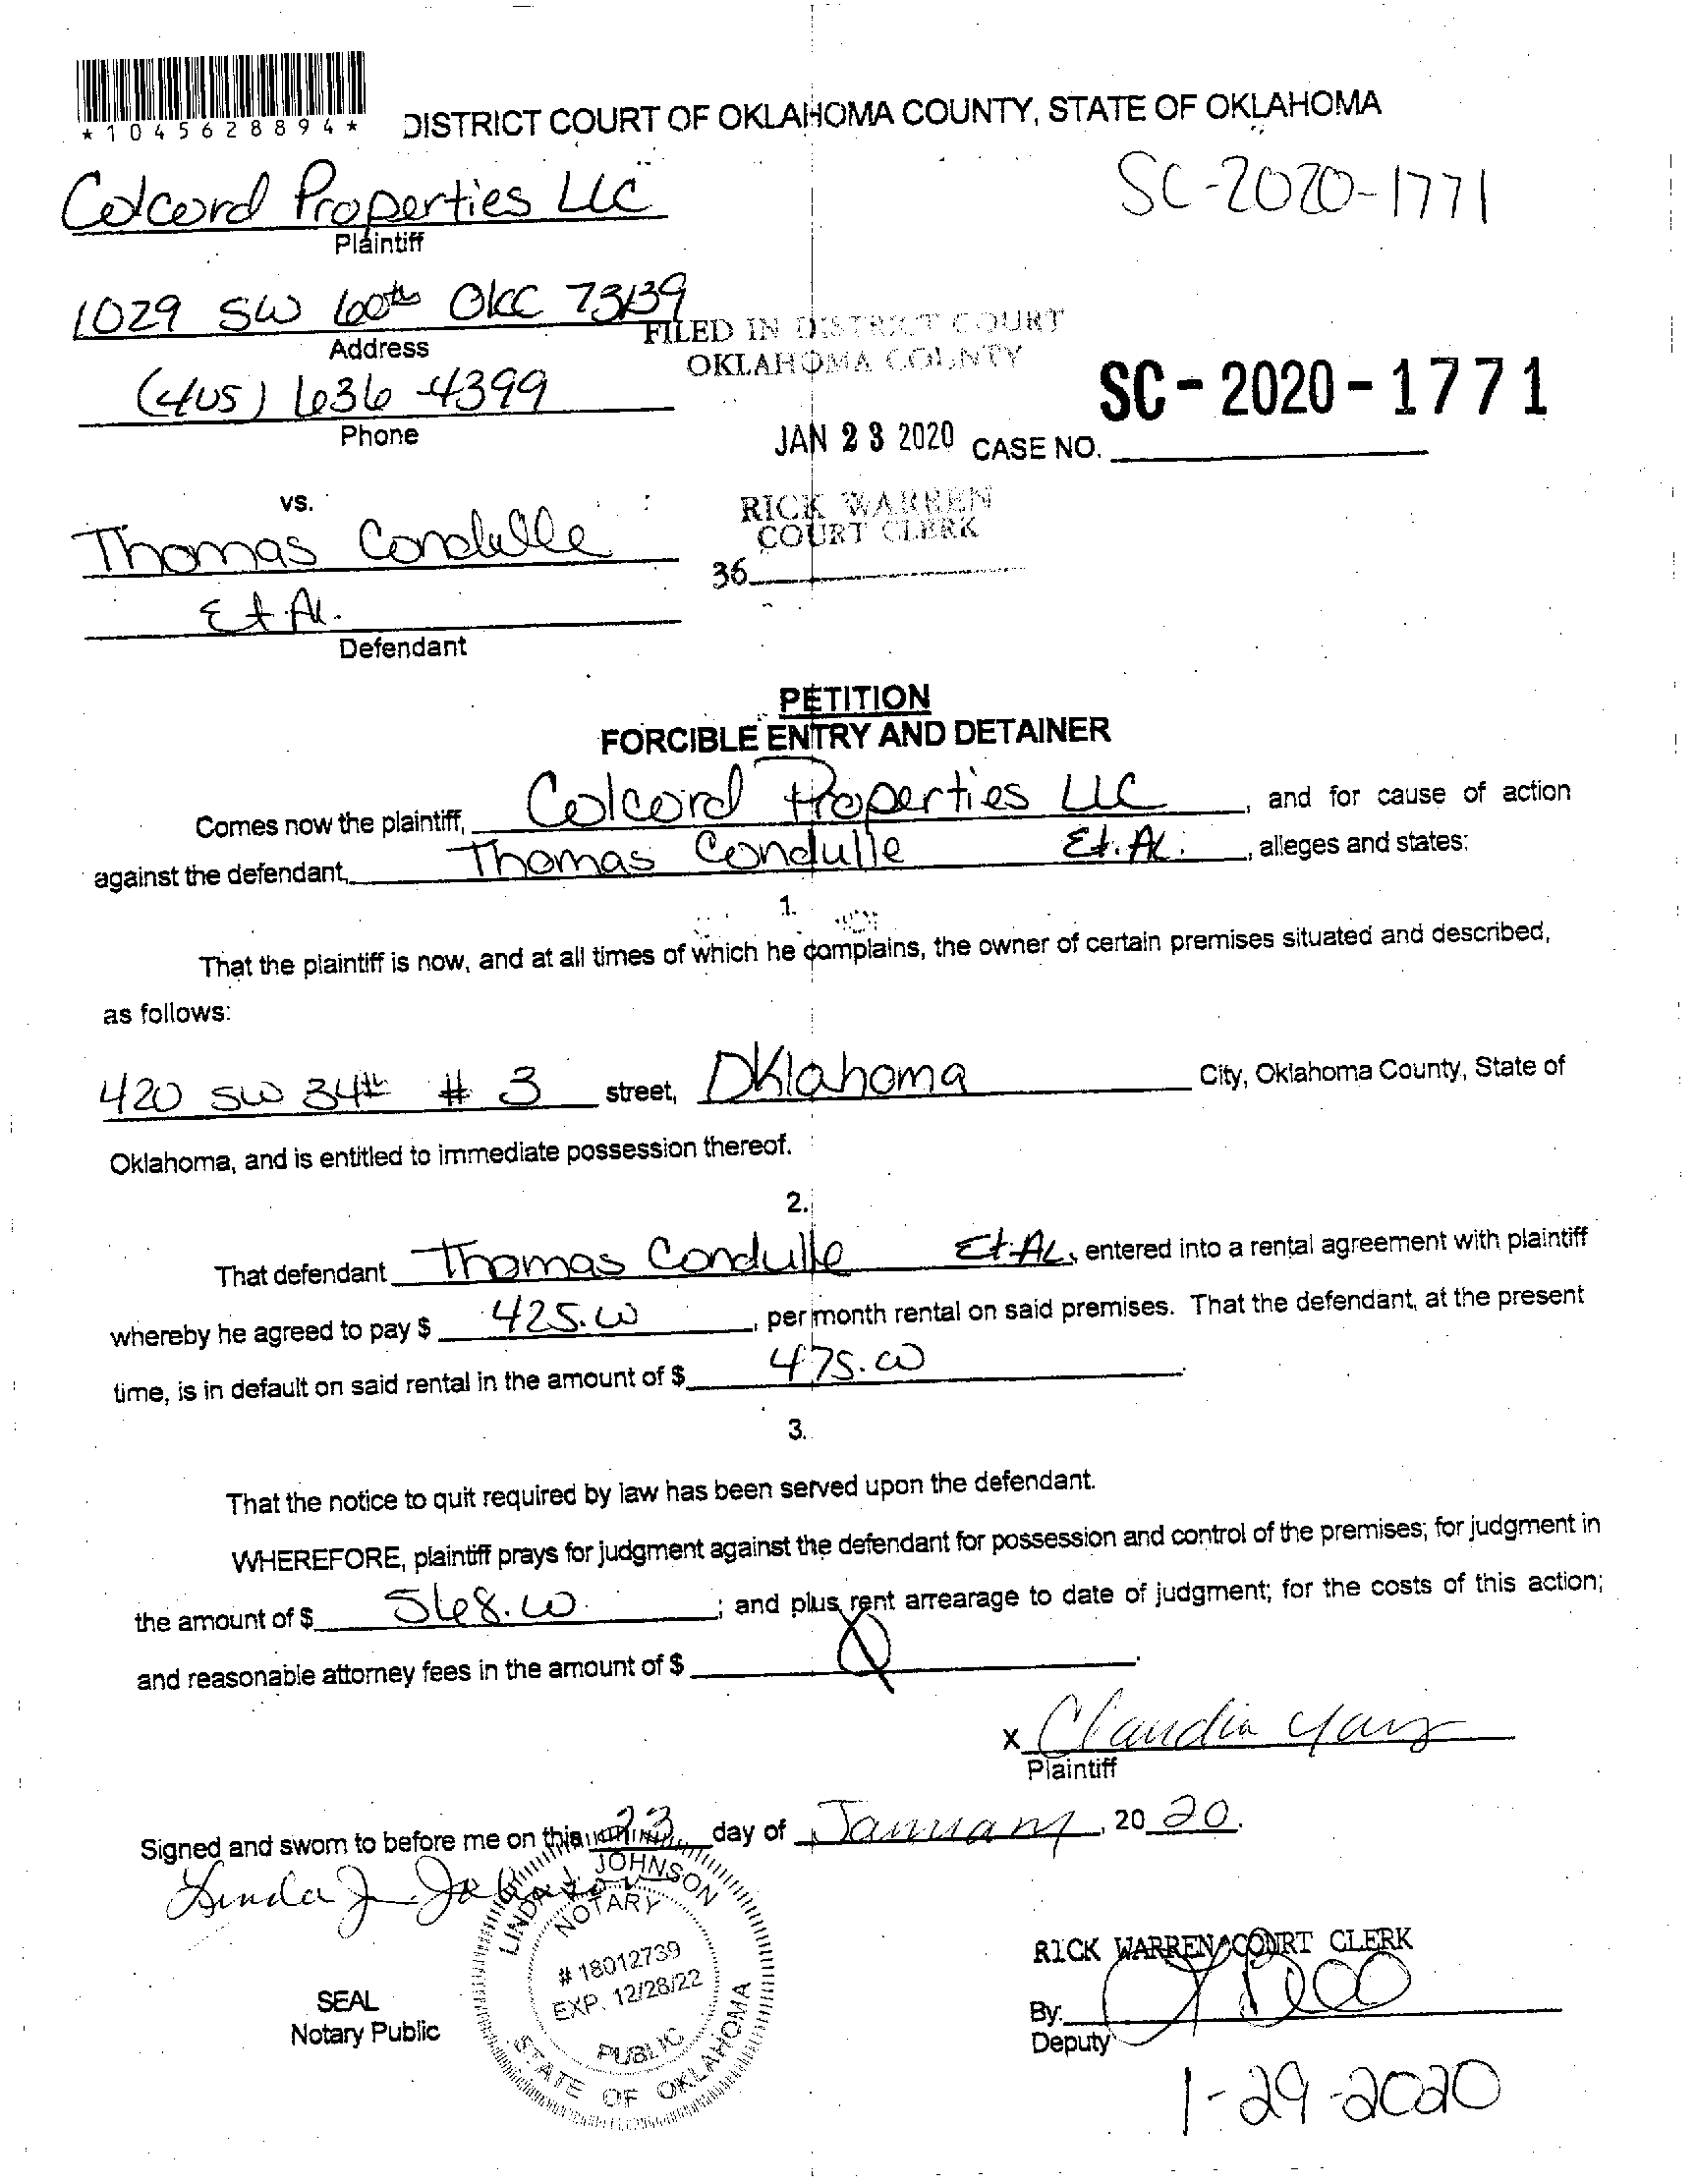 *1045628894*
DISTRICT COURT OF OKLAHOMA COUNTY, STATE OF OKLAHOMA
Colcord Properties LLC
SC-2020-1771
Plaintiff
1029 SW 60th OKC 73139
Address
FILED IN DISTRICT COURT
OKLAHOMA COUNTY
(405) 636-4399
Phone
JAN 23 2020
CASE NO. SC-2020-1771
vs.
RICK WARREN
COURT CLERK
36
Thomas Condulle
Et Al.
Defendant
PETITION
FORCIBLE ENTRY AND DETAINER
Comes now the plaintiff, Colcord Properties LLC, and for cause of action
against the defendant, Thomas Condulle Et. Al., alleges and states:
1.
That the plaintiff is now, and at all times of which he complains, the owner of certain premises situated and described,
as follows:
420 SW 34th # 3 street, Oklahoma City, Oklahoma County, State of
Oklahoma, and is entitled to immediate possession thereof.
2.
That defendant Thomas Condulle Et. AL, entered into a rental agreement with plaintiff
whereby he agreed to pay $ 425.00, per month rental on said premises. That the defendant, at the present
time, is in default on said rental in the amount of $ 475.00.
3.
That the notice to quit required by law has been served upon the defendant.
WHEREFORE, plaintiff prays for judgment against the defendant for possession and control of the premises; for judgment in
the amount of $ 568.00; and plus rent arrearage to date of judgment; for the costs of this action;
and reasonable attorney fees in the amount of $
x Claudia
Plaintiff
Signed and sworn to before me on this 23 day of January, 2020.
Linda J. Johnson
LINDA J. JOHNSON
NOTARY
# 18012739
EXP. 12/28/22
PUBLIC
STATE OF OKLAHOMA
SEAL
Notary Public
RICK WARREN COURT CLERK
By:
Deputy
1-29-2020